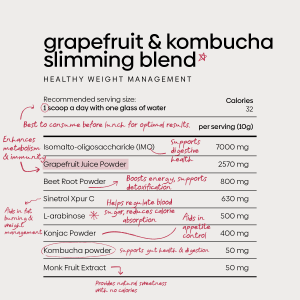 grapefruit & kombucha
slimming blend
HEALTHY WEIGHT MANAGEMENT
Recommended serving size:
1 scoop a day with one glass of water
Calories
32
Best to consume before lunch for optimal results.
per serving (10g)
Enhances
metabolism
& immunity
Isomalto-oligosaccharide (IMO)
Supports
digestive
health
7000 mg
Grapefruit Juice Powder
2570 mg
Beet Root Powder
Boosts energy, supports
detoxification
800 mg
Sinetrol Xpur C
630 mg
Helps regulate blood
sugar, reduces calorie
absorption
Aids in fat
burning &
weight
management
L-arabinose
500 mg
Aids in
appetite
control
Konjac Powder
400 mg
Kombucha powder
Supports gut health & digestion
50 mg
Monk Fruit Extract
50 mg
Provides natural sweetness
with no calories